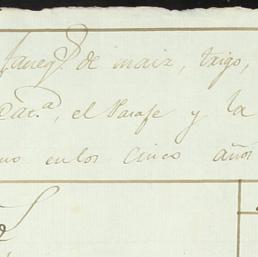 faneg.s de maiz, trigo,
car.a, el Parafe y la
en los cinco años